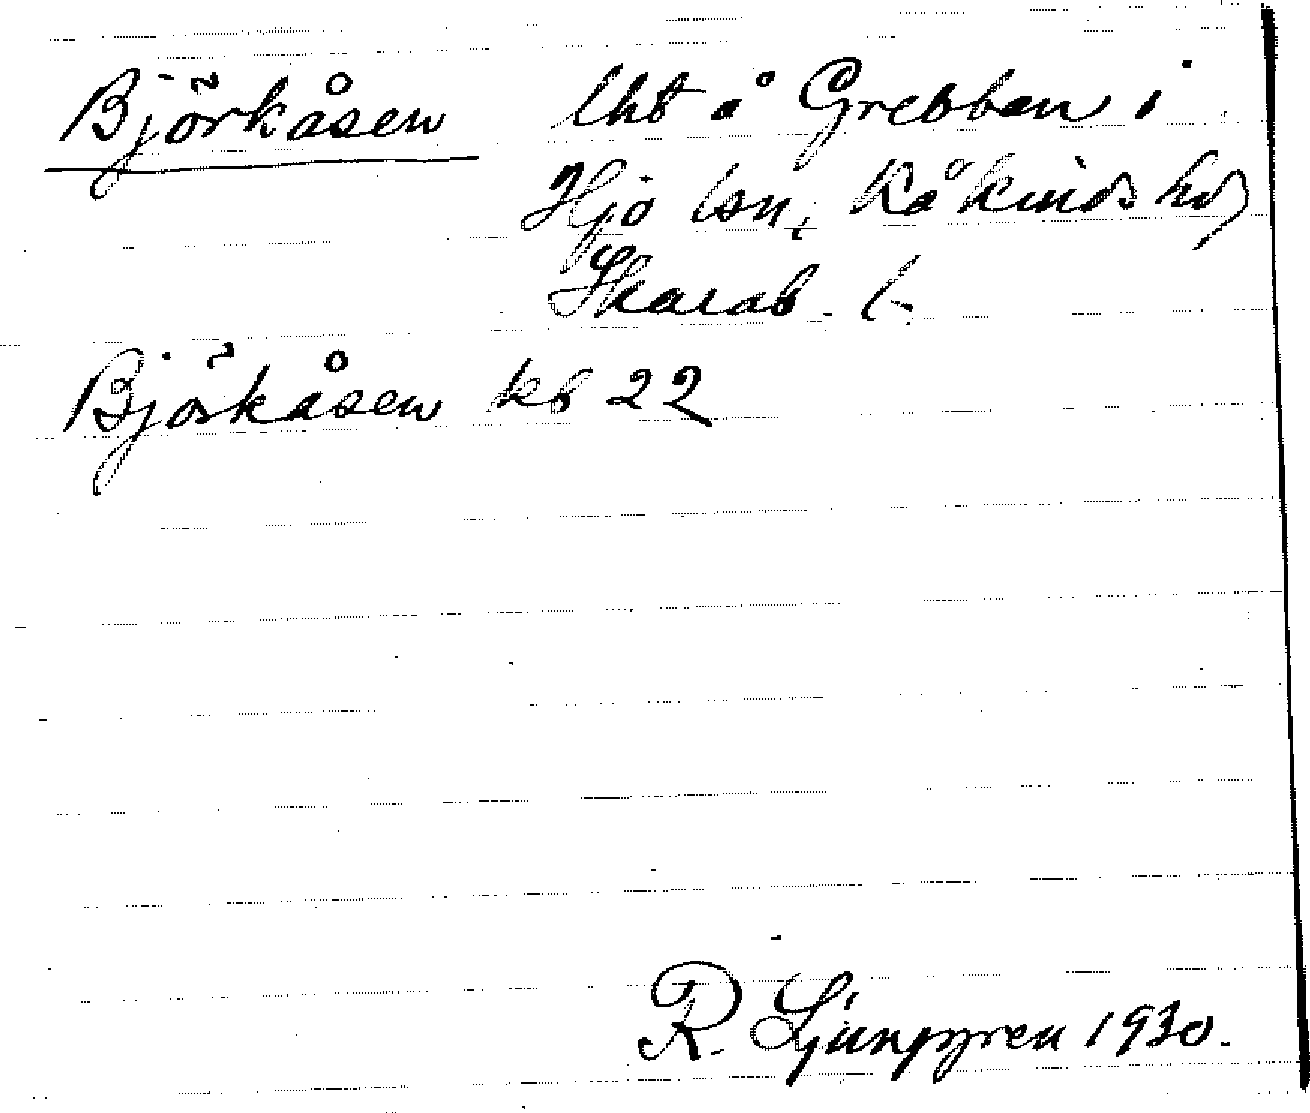 Björkåsen lht å Grebban i
Hjo lsn, Kåkinds hd,
Skarab. l.
Björkåsen kb 22
R. Ljunggren 1930.